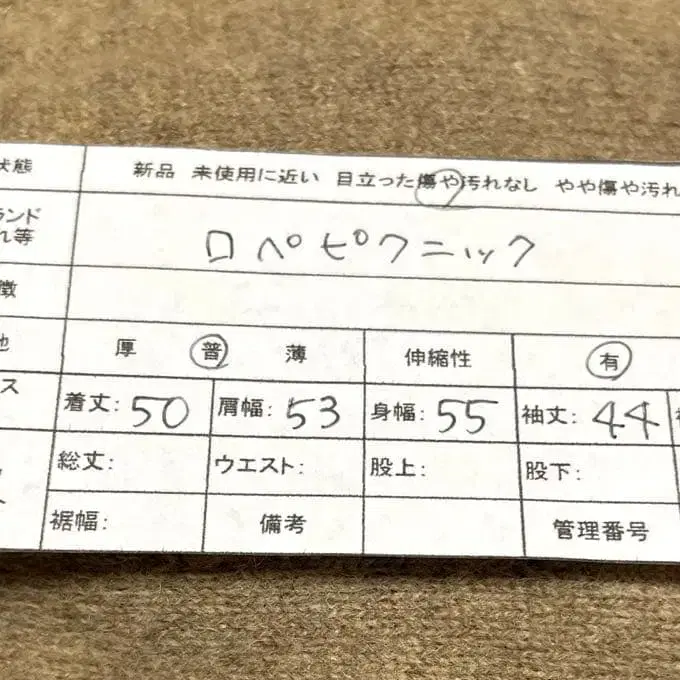 状態 新品 未使用に近い 目立った傷や汚れなし やや傷や汚れ
ランド
れ等 ロペピクニック
徴
地 厚 普 薄 伸縮性 有
ス 着丈: 50 肩幅: 53 身幅: 55 袖丈: 44
総丈: ウエスト: 股上: 股下:
裾幅: 備考 管理番号